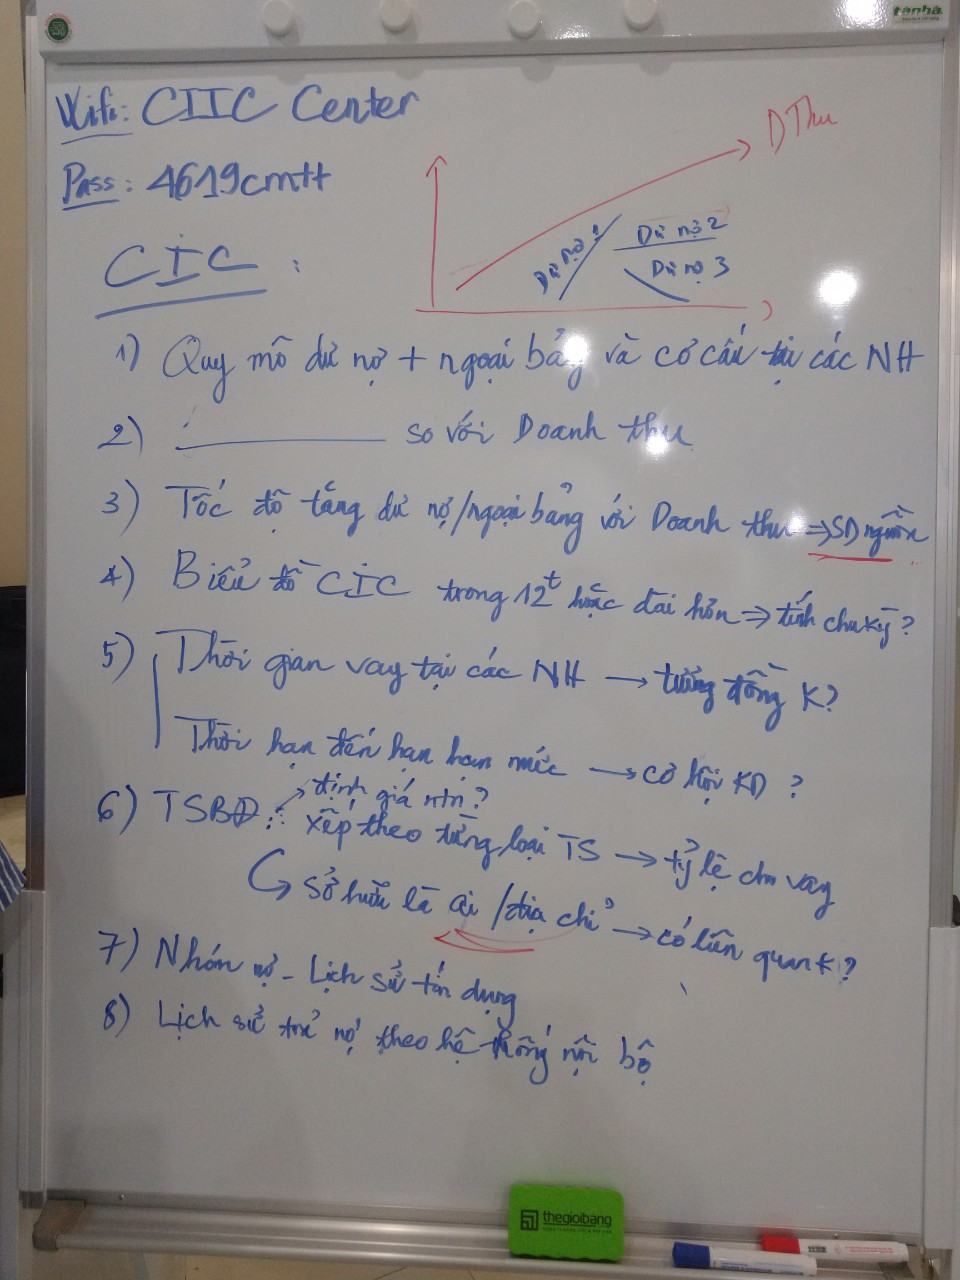 tanhà
Wifi: CIIC Center
Pass: 4619cmtt
D Thu
Dư nợ 1
Dư nợ 2
Dư nợ 3
CIC :
1) Quy mô dư nợ + ngoại bảng và cơ cấu tại các NH
2) ________ so với Doanh thu
3) Tốc độ tăng dư nợ/ngoại bảng với Doanh thu => SD nguồn
4) Biểu đồ CIC trong 12t hoặc dài hơn => tính chu kỳ?
5) Thời gian vay tại các NH → tương đồng K?
Thời hạn đến hạn hạn mức → cơ hội KD ?
6) TSBĐ : → định giá ntn?
xếp theo từng loại TS → tỷ lệ cho vay
↳ sở hữu là ai /địa chỉ → có liên quan K?
7) Nhóm nợ - Lịch sử tín dụng
8) Lịch sử trả nợ theo hệ thống nội bộ
thegioibang